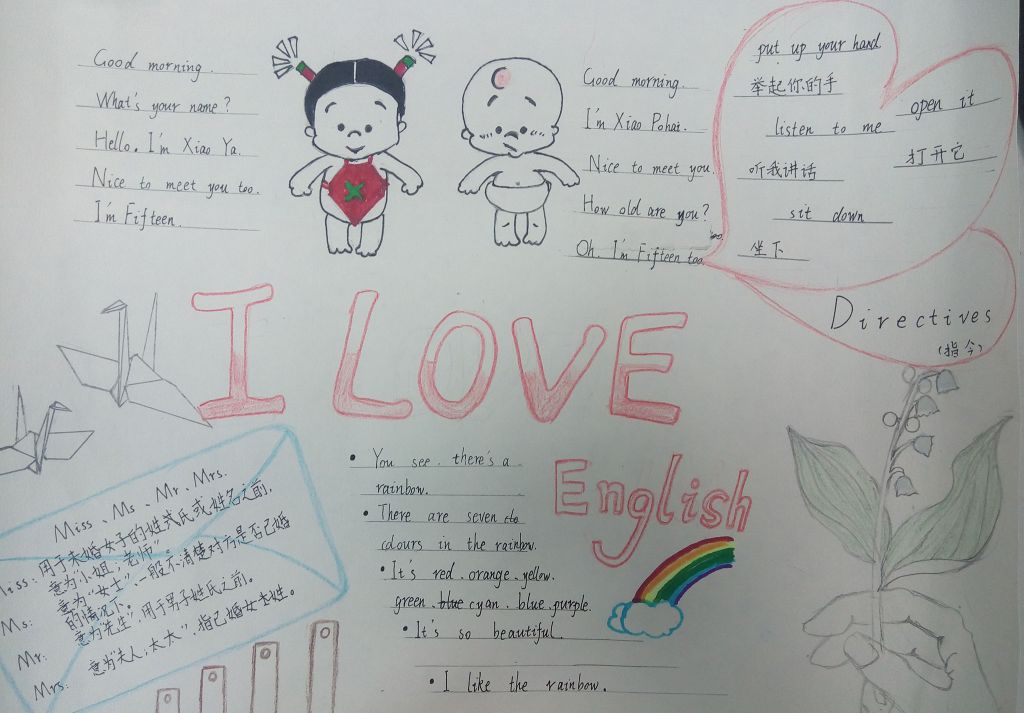 Good morning.
What's your name?
Hello. I'm Xiao Ya.
Nice to meet you too.
I'm Fifteen.
Good morning.
I'm Xiao Pohai.
Nice to meet you.
How old are you?
Oh. I'm Fifteen too.
put up your hand
举起你的手
listen to me
听我讲话
sit down
坐下
open it
打开它
Directives
(指令)
I LOVE
English
Miss、Ms、Mr、Mrs.
Miss: 用于未婚女子的姓或姓名之前,
意为"小姐,老师".
Ms: 意为"女士",一般不清楚对方是否已婚
的情况下.
Mr: 意为"先生",用于男子姓氏之前。
Mrs: 意为"夫人,太太",指已婚女士姓。
• You see. there's a
rainbow.
• There are seven
colours in the rainbow.
• It's red.orange.yellow.
green.blue cyan.blue.purple.
• It's so beautiful.
• I like the rainbow.